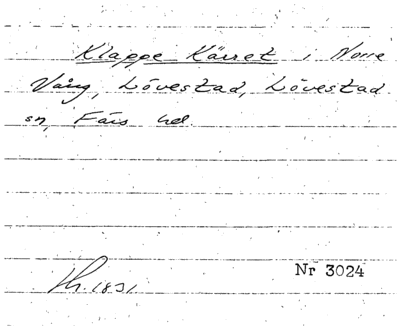 Klappe Kärret i Norre
Vång, Lövestad, Lövestad
sn, Färs hd
Nr 3024
1831